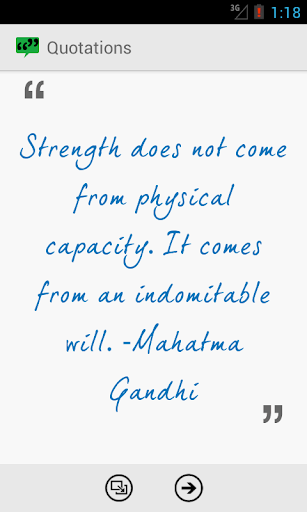 3G 1:18
Quotations
“
Strength does not come
from physical
capacity. It comes
from an indomitable
will. -Mahatma
Gandhi
”